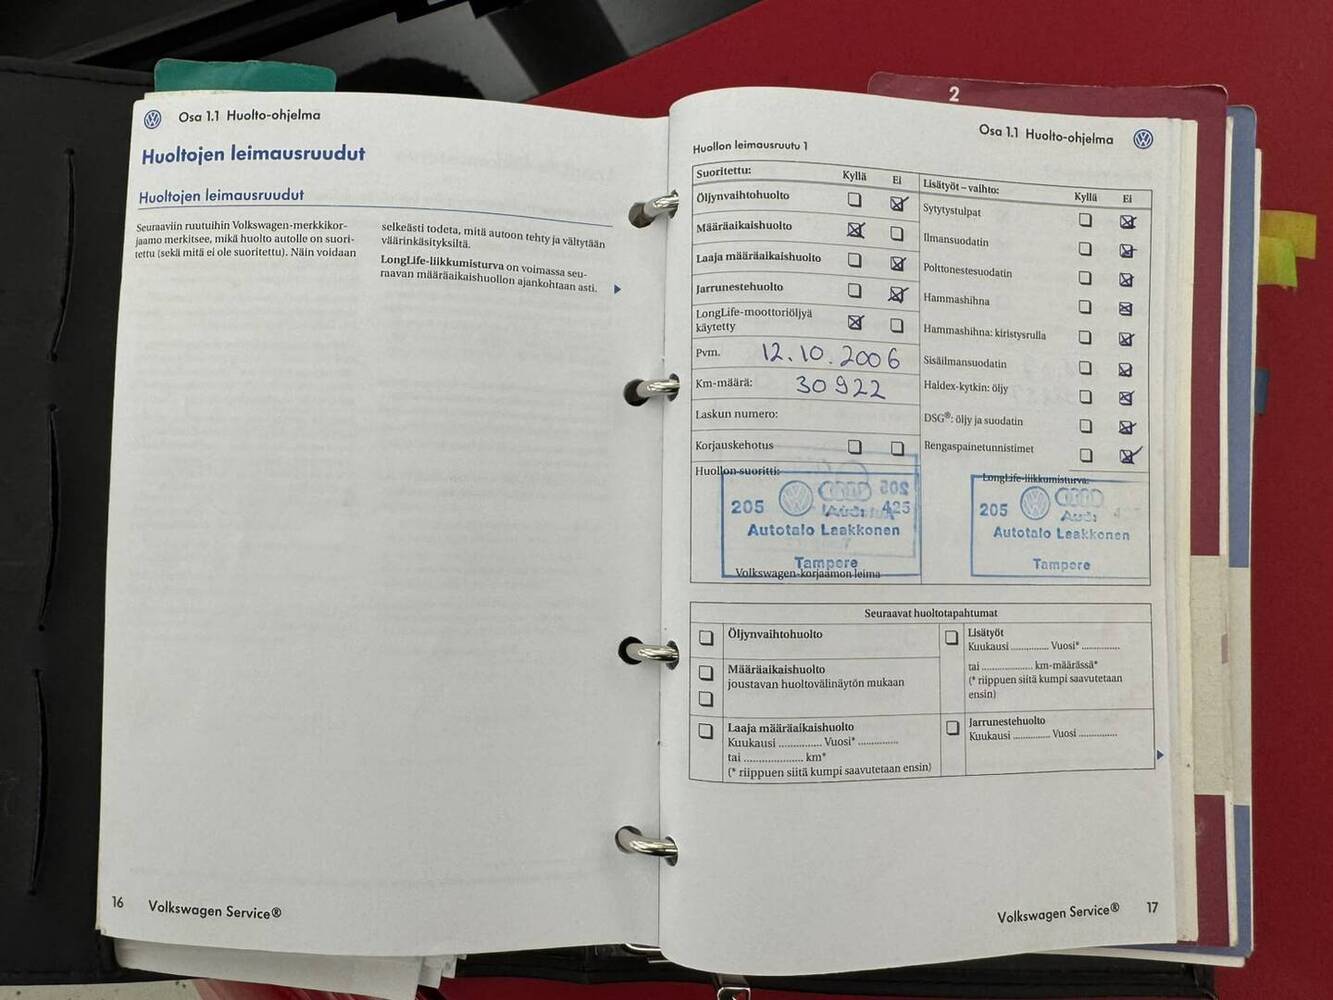 Osa 1.1 Huolto-ohjelma
Huoltojen leimausruudut
Huoltojen leimausruudut
Seuraaviin ruutuihin Volkswagen-merkkikor-
jaamo merkitsee, mikä huolto autolle on suori-
tettu (sekä mitä ei ole suoritettu). Näin voidaan
selkeästi todeta, mitä autoon tehty ja vältytään
väärinkäsityksiltä.
LongLife-liikkumisturva on voimassa seu-
raavan määräaikaishuollon ajankohtaan asti.
16 Volkswagen Service®
2
Osa 1.1 Huolto-ohjelma
Huollon leimausruutu 1
Suoritettu: Kyllä Ei
Öljynvaihtohuolto
Määräaikaishuolto
Laaja määräaikaishuolto
Jarrunestehuolto
LongLife-moottoriöljyä
käytetty
Pvm. 12.10.2006
Km-määrä: 30922
Laskun numero:
Korjauskehotus
Huollon suoritti:
205 Audi 425
Autotalo Laakkonen
Tampere
Volkswagen-korjaamon leima
Lisätyöt – vaihto: Kyllä Ei
Sytytystulpat
Ilmansuodatin
Polttonestesuodatin
Hammashihna
Hammashihna: kiristysrulla
Sisäilmansuodatin
Haldex-kytkin: öljy
DSG®: öljy ja suodatin
Rengaspainetunnistimet
LongLife-liikkumisturva:
205 Audi
Autotalo Laakkonen
Tampere
Seuraavat huoltotapahtumat
Öljynvaihtohuolto
Määräaikaishuolto
joustavan huoltovälinäytön mukaan
Laaja määräaikaishuolto
Kuukausi .............. Vuosi* .............
tai ................... km*
(* riippuen siitä kumpi saavutetaan ensin)
Lisätyöt
Kuukausi ............ Vuosi* ............
tai ................ km-määrässä*
(* riippuen siitä kumpi saavutetaan
ensin)
Jarrunestehuolto
Kuukausi ............ Vuosi ............
Volkswagen Service® 17